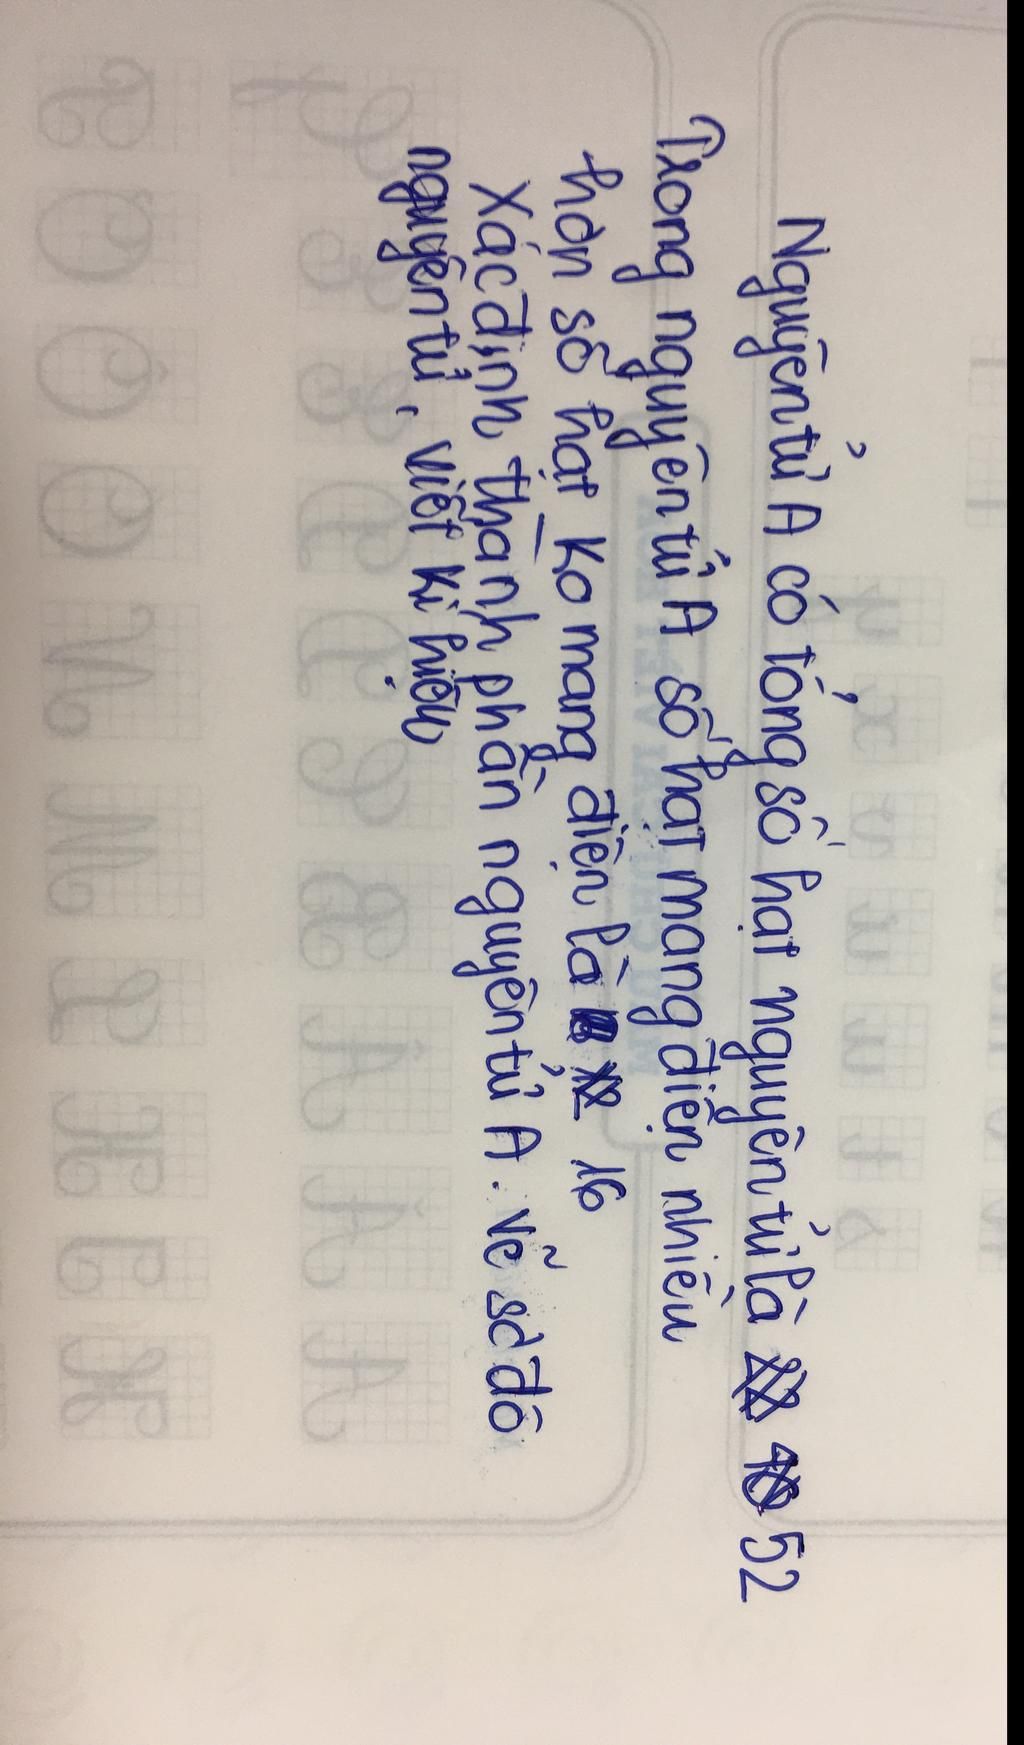 Nguyên tử A có tổng số hạt nguyên tử là 52
Trong nguyên tử A số hạt mang điện nhiều
hơn số hạt ko mang điện là 16
Xác định thành phần nguyên tử A. Vẽ sơ đồ
nguyên tử, viết kí hiệu